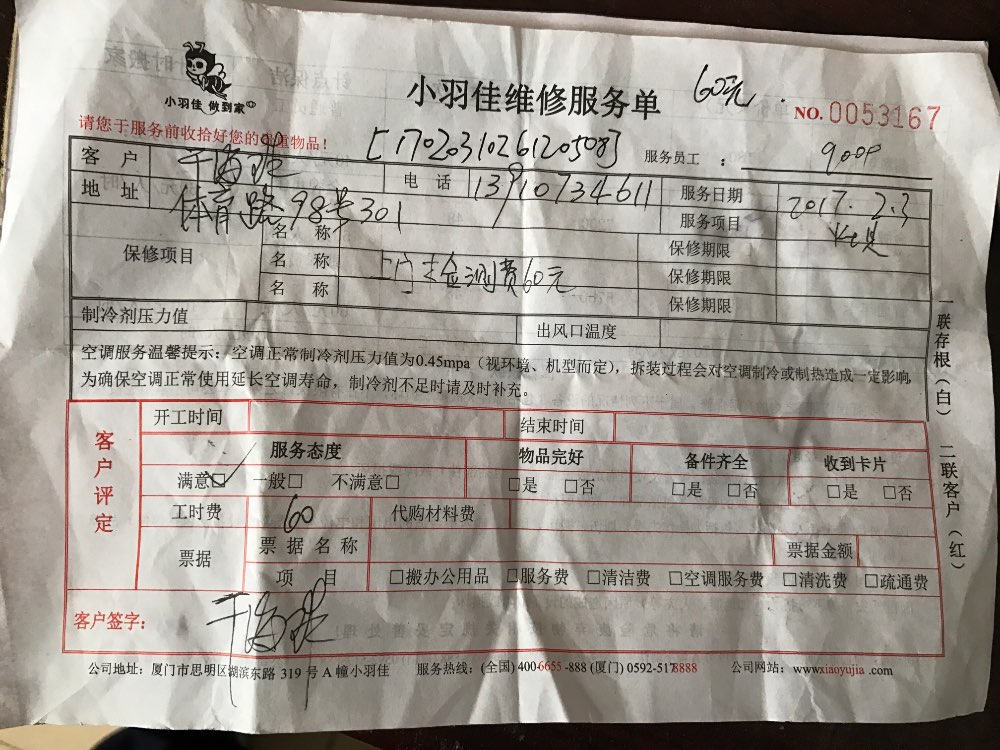 小羽佳 做到家
小羽佳维修服务单
60元
NO. 0053167
请您于服务前收拾好您的贵重物品!
[1702031026120508]
服务员工 :
客 户
电 话 13910734611
服务日期 2017.2.3
地 址 体育路98号301
服务项目
保修项目
名 称
保修期限
名 称 上门检测费60元
保修期限
名 称
保修期限
制冷剂压力值
出风口温度
空调服务温馨提示:空调正常制冷剂压力值为0.45mpa(视环境、机型而定),拆装过程会对空调制冷或制热造成一定影响,
为确保空调正常使用延长空调寿命,制冷剂不足时请及时补充。
一联存根(白) 二联客户(红)
客户评定
开工时间 结束时间
服务态度 物品完好 备件齐全 收到卡片
满意☑ 一般□ 不满意□ □是 □否 □是 □否 □是 □否
工时费 60 代购材料费
票据 票据名称 票据金额
项 目 □搬办公用品 □服务费 □清洁费 □空调服务费 □清洗费 □疏通费
客户签字:
公司地址:厦门市思明区湖滨东路 319 号 A 幢小羽佳 服务热线:(全国) 400-6655-888 (厦门) 0592-5178888 公司网站:www.xiaoyujia.com